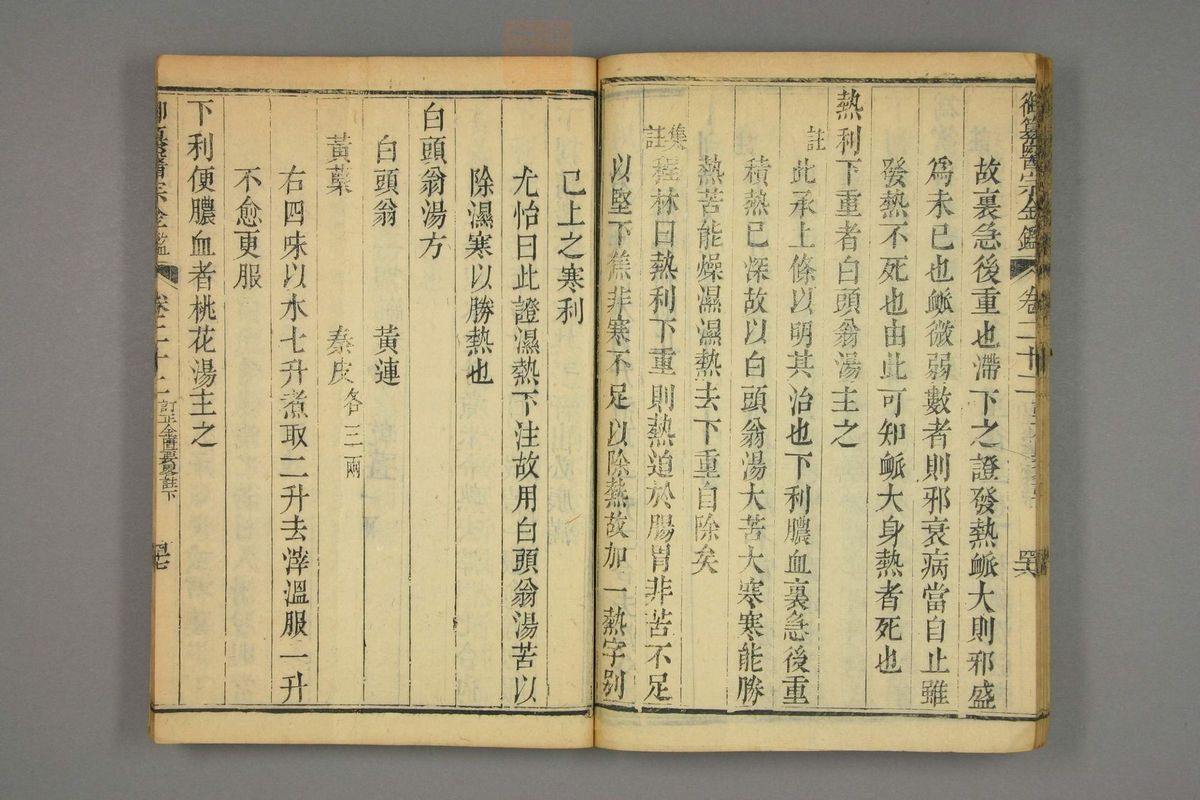 御纂醫宗金鑑 卷二十二 四十六
故裏急後重也滯下之證發熱脈大則邪盛
爲未已也脈微弱數者則邪衰病當自止雖
發熱不死也由此可知脈大身熱者死也
熱利下重者白頭翁湯主之
註此承上條以明其治也下利膿血裏急後重
積熱已深故以白頭翁湯大苦大寒寒能勝
熱苦能燥濕濕熱去下重自除矣
集註程林曰熱利下重則熱迫於腸胃非苦不足
以堅下焦非寒不足以除熱故加一熱字別
已上之寒利
尤怡曰此證濕熱下注故用白頭翁湯苦以
除濕寒以勝熱也
白頭翁湯方
白頭翁 黃連
黃蘗 秦皮各三兩
右四味以水七升煮取二升去滓溫服一升
不愈更服
下利便膿血者桃花湯主之
御纂醫宗金鑑 卷二十二 訂正金匱要畧註下 四十七